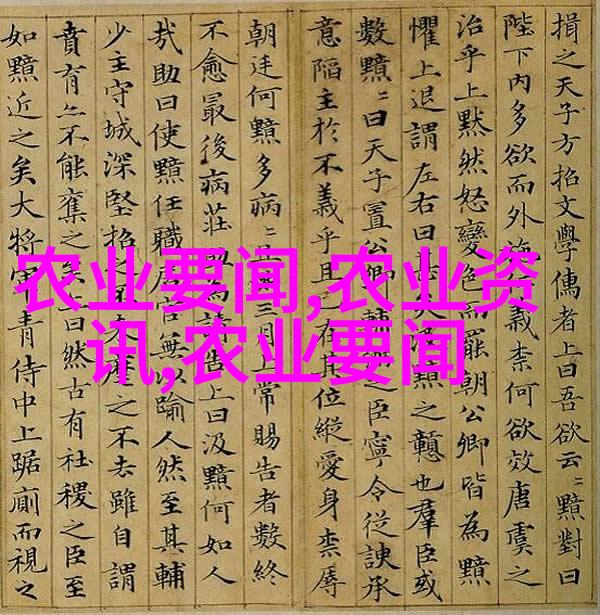 揖之天子方招文學儒者上曰吾欲云〻黯對曰
陛下內多欲而外施義柰何欲效唐虞之
治乎上黙然怒變色而罷朝公卿皆為黯
懼上退謂左右曰甚矣汲黯之戇也羣臣或
數黯〻曰天子置公卿輔弼之臣寧令從諛承
意陷主於不義乎且已在其位縱愛身柰辱
朝廷何黯多病〻且滿三月上常賜告者數終
不愈最後病莊助為請告上曰汲黯何如人
㢤助曰使黯任職居官無以踰人然至其輔
少主守城深堅招之不來麾之不去雖自謂
賁育亦不能奪之矣上曰然古有社稷之臣至
如黯近之矣大將軍青侍中上踞廁而視之
农业要闻,农业资
讯,农业要闻